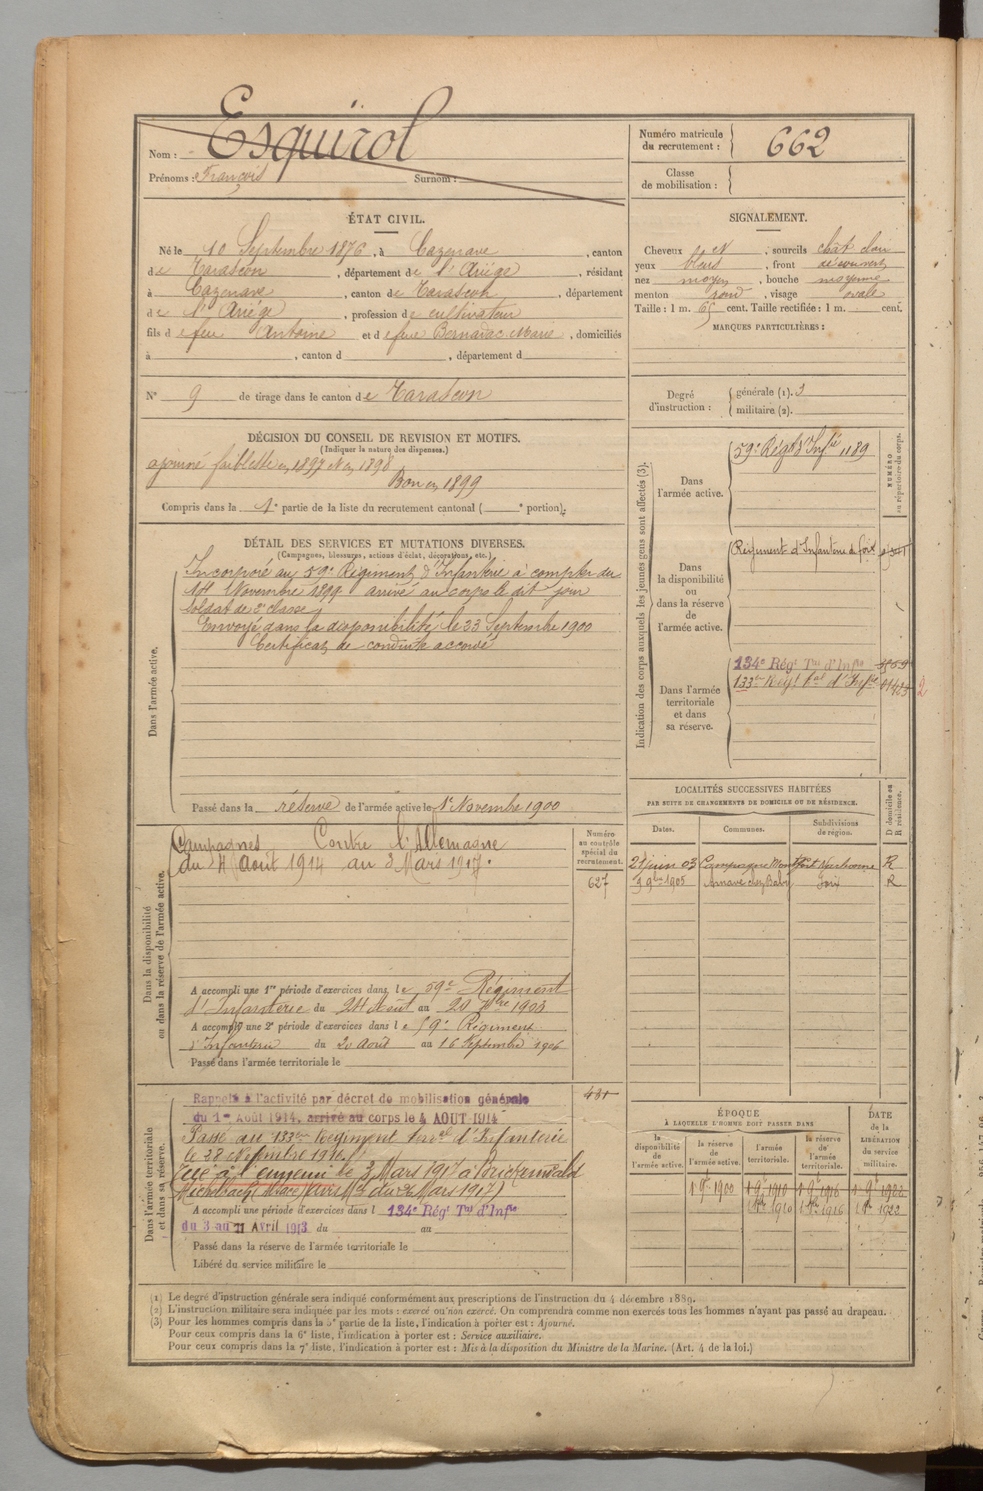 Nom : Esquirol
Prénoms : François Surnom :
Numéro matricule du recrutement : 662
Classe de mobilisation :
ÉTAT CIVIL.
Né le 10 Septembre 1876, à Cazenave, canton
de Tarascon, département de l'Ariége, résidant
à Cazenave, canton de Tarascon, département
de l'Ariége, profession de cultivateur
fils de feu Antoine et de feue Bernadac Marie, domiciliés
à , canton d , département d
N° 9 de tirage dans le canton de Tarascon
SIGNALEMENT.
Cheveux et , sourcils chât clair
yeux bleus, front découvert
nez moyen, bouche moyenne
menton rond, visage ovale
Taille : 1 m. 65 cent. Taille rectifiée : 1 m. cent.
MARQUES PARTICULIÈRES :
Degré d'instruction : générale (1). 3
militaire (2).
DÉCISION DU CONSEIL DE REVISION ET MOTIFS.
(Indiquer la nature des dispenses.)
ajourné faiblesse en 1897 et en 1898
Bon en 1899
Compris dans la 1e partie de la liste du recrutement cantonal ( e portion).
DÉTAIL DES SERVICES ET MUTATIONS DIVERSES.
(Campagnes, blessures, actions d'éclat, décorations, etc.)
Dans l'armée active.
Incorporé au 59e Régiment d'Infanterie à compter du
14 Novembre 1899 arrivé au corps le dit jour
soldat de 2e classe
Envoyé dans la disponibilité le 23 Septembre 1900
Certificat de conduite accordé
Passé dans la réserve de l'armée active le 1r Novembre 1900
Indication des corps auxquels les jeunes gens sont affectés (3).
NUMÉRO au répertoire du corps.
Dans l'armée active.
59e Régt d'Infie 1189
Dans la disponibilité ou dans la réserve de l'armée active.
Régiment d'Infanterie de foix
Dans l'armée territoriale et dans sa réserve.
134e Régt Tal d'Infie
133e Régt tal d'Infie
2
LOCALITÉS SUCCESSIVES HABITÉES
PAR SUITE DE CHANGEMENTS DE DOMICILE OU DE RÉSIDENCE.
Dates. Communes. Subdivisions de région. D domicile ou R résidence.
21 juin 03 Campagne Montfort Narbonne R
9 9bre 1905 Arnave chez Baby Foix R
Dans la disponibilité ou dans la réserve de l'armée active.
Numéro au contrôle spécial du recrutement.
627
Campagnes Contre l'Allemagne
du 4 Août 1914 au 3 Mars 1917.
A accompli une 1re période d'exercices dans le 59e Régiment
d'Infanterie du 24 Août au 20 7bre 1903
A accompli une 2e période d'exercices dans le 59e Régiment
d'Infanterie du 20 Août au 16 Septembre 1906
Passé dans l'armée territoriale le
Dans l'armée territoriale et dans sa réserve.
Rappelé à l'activité par décret de mobilisation générale
du 1er Août 1914, arrivé au corps le 4 AOUT 1914
Passé au 133me Régiment terral d'Infanterie
le 28 Novembre 1916.
Tué à l'ennemi le 3 Mars 1917 à
Michelbach Alsace
A accompli une période d'exercices dans l 134e Régt Tal d'Infie
du 3 au 11 Avril 1913 du au
Passé dans la réserve de l'armée territoriale le
Libéré du service militaire le
ÉPOQUE
À LAQUELLE L'HOMME DOIT PASSER DANS
la disponibilité de l'armée active. la réserve de l'armée active. l'armée territoriale. la réserve de l'armée territoriale.
DATE de la LIBÉRATION du service militaire.
1r 9bre 1900 1r 9bre 1910 1r 9bre 1916 1r 9bre 1922
1r 8bre 1910 1r 8bre 1916 1r 8bre 1922
(1) Le degré d'instruction générale sera indiqué conformément aux prescriptions de l'instruction du 4 décembre 1889.
(2) L'instruction militaire sera indiquée par les mots : exercé ou non exercé. On comprendra comme non exercés tous les hommes n'ayant pas passé au drapeau.
(3) Pour les hommes compris dans la 5e partie de la liste, l'indication à porter est : Ajourné.
Pour ceux compris dans la 6e liste, l'indication à porter est : Service auxiliaire.
Pour ceux compris dans la 7e liste, l'indication à porter est : Mis à la disposition du Ministre de la Marine. (Art. 4 de la loi.)